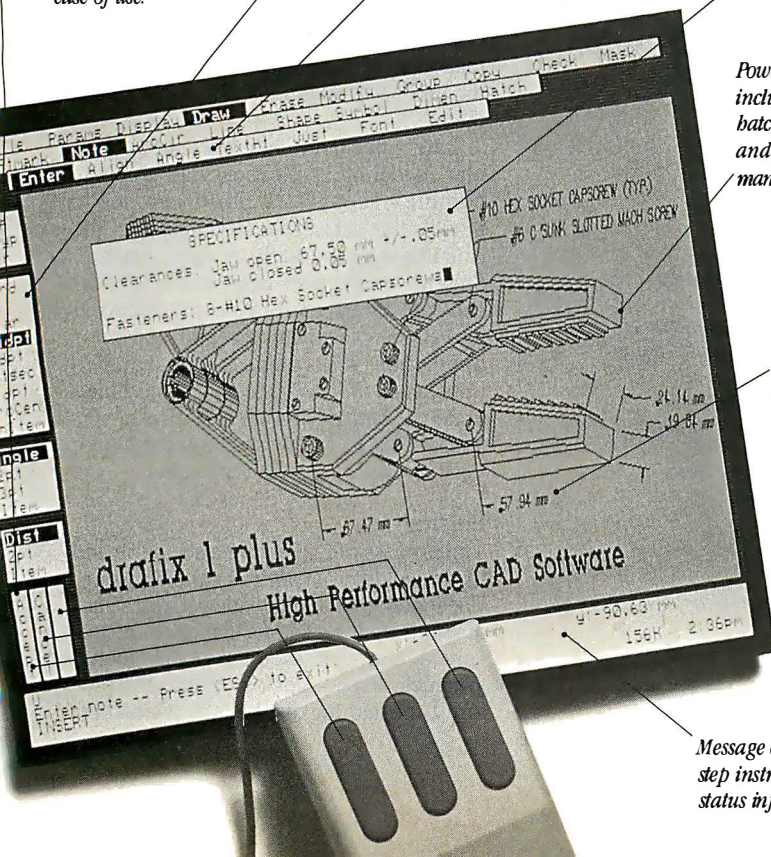 ease of use.
Params Display Draw Erase Modify Group Copy Check Mask
Note ArcCir Line Shape Symbol Dimen Hatch
Enter Align Angle TextHt Just Font Edit
SPECIFICATIONS
Clearances: Jaw open 67.50 mm +/-.05mm
Jaw closed 0.05 mm
Fasteners: 8-#10 Hex Socket Capscrews
#10 HEX SOCKET CAPSCREW (TYP.)
#6 C SUNK SLOTTED MACH SCREW
24.14 mm
19.84 mm
57.94 mm
67.47 mm
Dist
2pt
1item
Accept
Change
Cancel
drafix 1 plus
High Performance CAD Software
y:-90.63 mm
156K 2:36pm
Enter note -- Press <ESC> to exit
INSERT
hatc
and
man
Message
step inst
status in